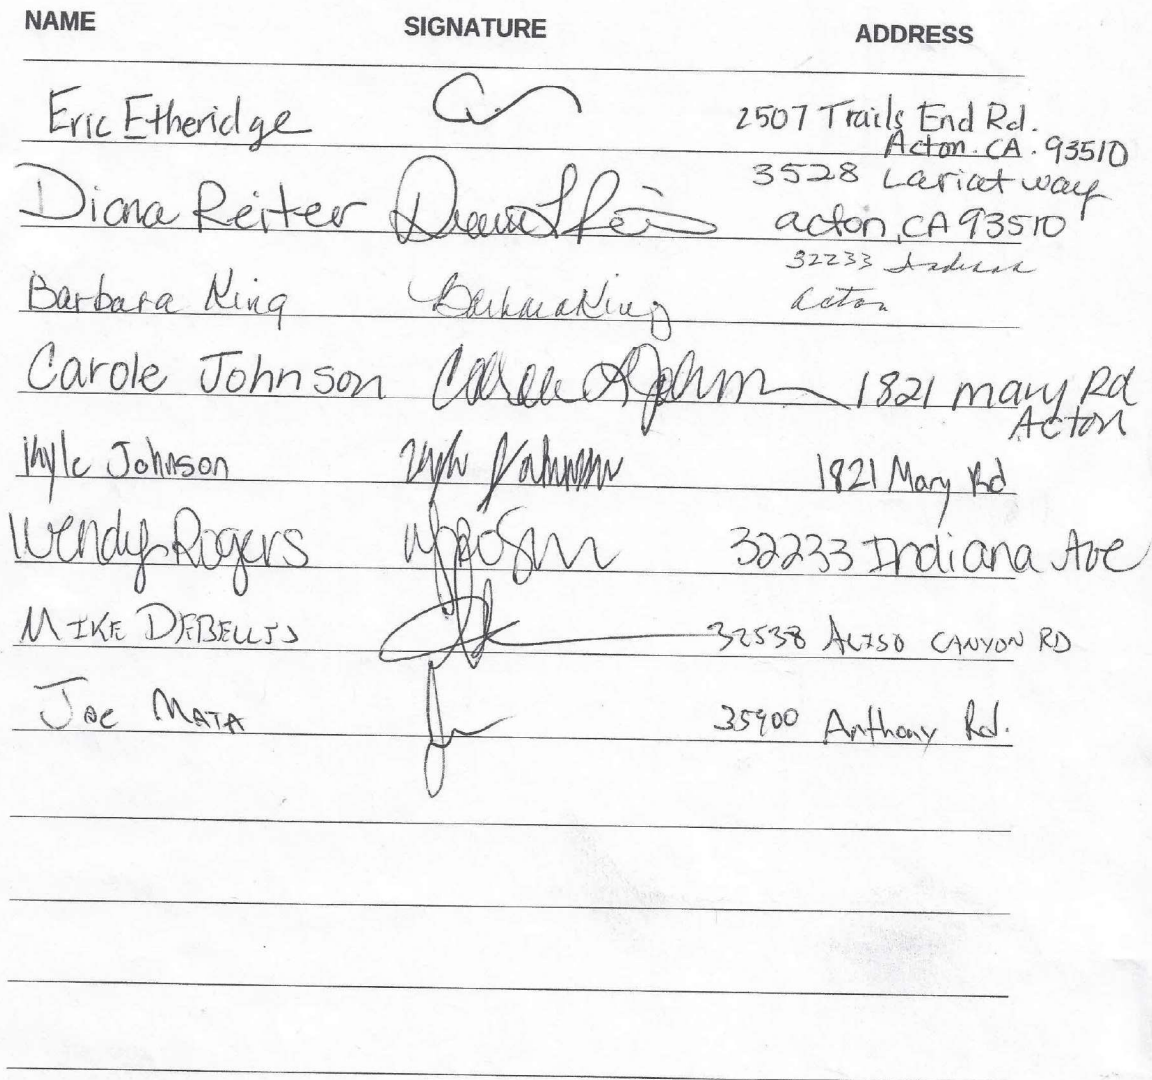 NAME SIGNATURE ADDRESS
Eric Etheridge 2507 Trails End Rd.
Acton. CA. 93510
3528 Lariat way
Diana Reiter acton, CA 93510
32233
Barbara King Barbara King Acton
Carole Johnson 1821 mary Rd
Acton
Kyle Johnson Kyle Johnson 1821 Mary Rd
Wendy Rogers 32233 Indiana Ave
MIKE DEBELLIS 32538 ALISO CANYON RD
Joe MATA 35900 Anthony Rd.